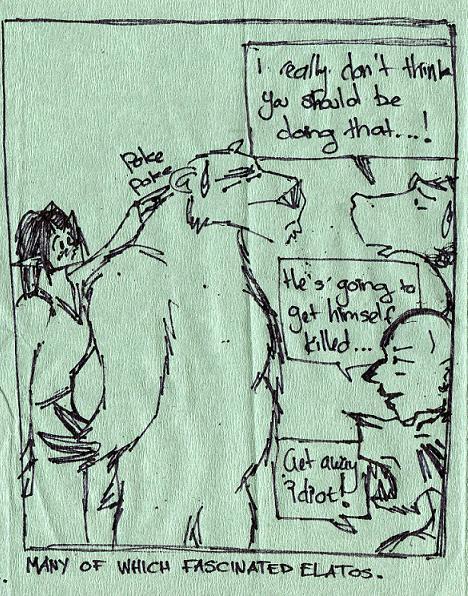 I really don't think
you should be
doing that...!
Poke
Poke
He's going to
get himself
killed...
Get away
idiot!
MANY OF WHICH FASCINATED ELATOS.